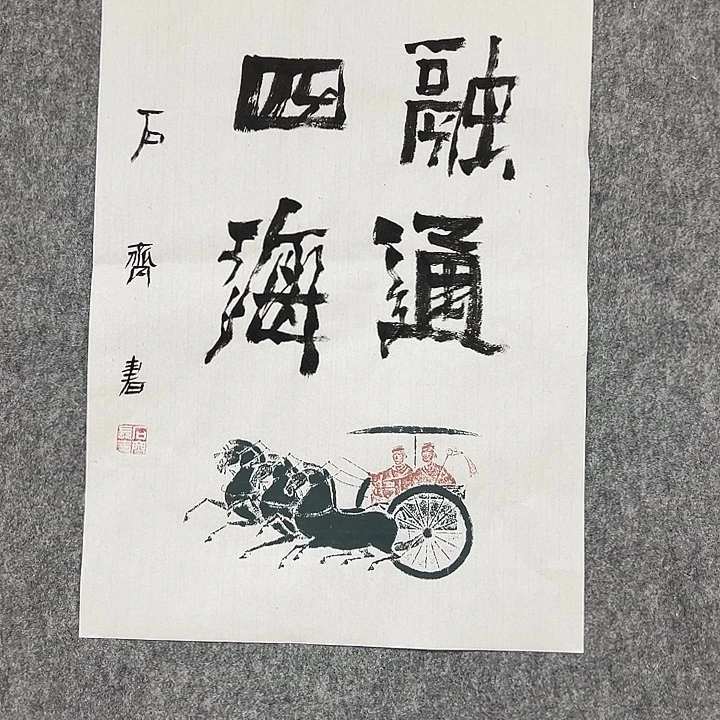 融通
四海
石齊書